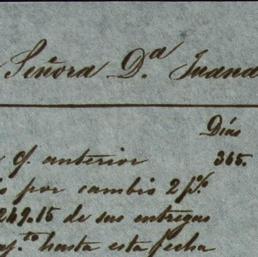 Señora D.ª Juana
Días
q. anterior 365.
por cambio 2 p%.
249.15 de sus entregas
hasta esta fecha